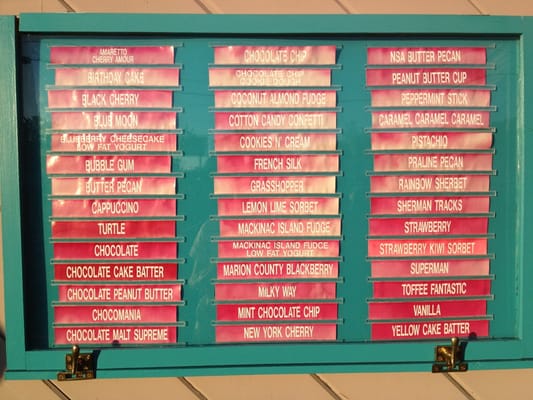 AMARETTO
CHERRY AMOUR
BIRTHDAY CAKE
BLACK CHERRY
BLUE MOON
BLUEBERRY CHEESECAKE
LOW FAT YOGURT
BUBBLE GUM
BUTTER PECAN
CAPPUCCINO
TURTLE
CHOCOLATE
CHOCOLATE CAKE BATTER
CHOCOLATE PEANUT BUTTER
CHOCOMANIA
CHOCOLATE MALT SUPREME
CHOCOLATE CHIP
CHOCOLATE CHIP
COOKIE DOUGH
COCONUT ALMOND FUDGE
COTTON CANDY CONFETTI
COOKIES N' CREAM
FRENCH SILK
GRASSHOPPER
LEMON LIME SORBET
MACKINAC ISLAND FUDGE
MACKINAC ISLAND FUDGE
LOW FAT YOGURT
MARION COUNTY BLACKBERRY
MILKY WAY
MINT CHOCOLATE CHIP
NEW YORK CHERRY
NSA BUTTER PECAN
PEANUT BUTTER CUP
PEPPERMINT STICK
CARAMEL CARAMEL CARAMEL
PISTACHIO
PRALINE PECAN
RAINBOW SHERBET
SHERMAN TRACKS
STRAWBERRY
STRAWBERRY KIWI SORBET
SUPERMAN
TOFFEE FANTASTIC
VANILLA
YELLOW CAKE BATTER